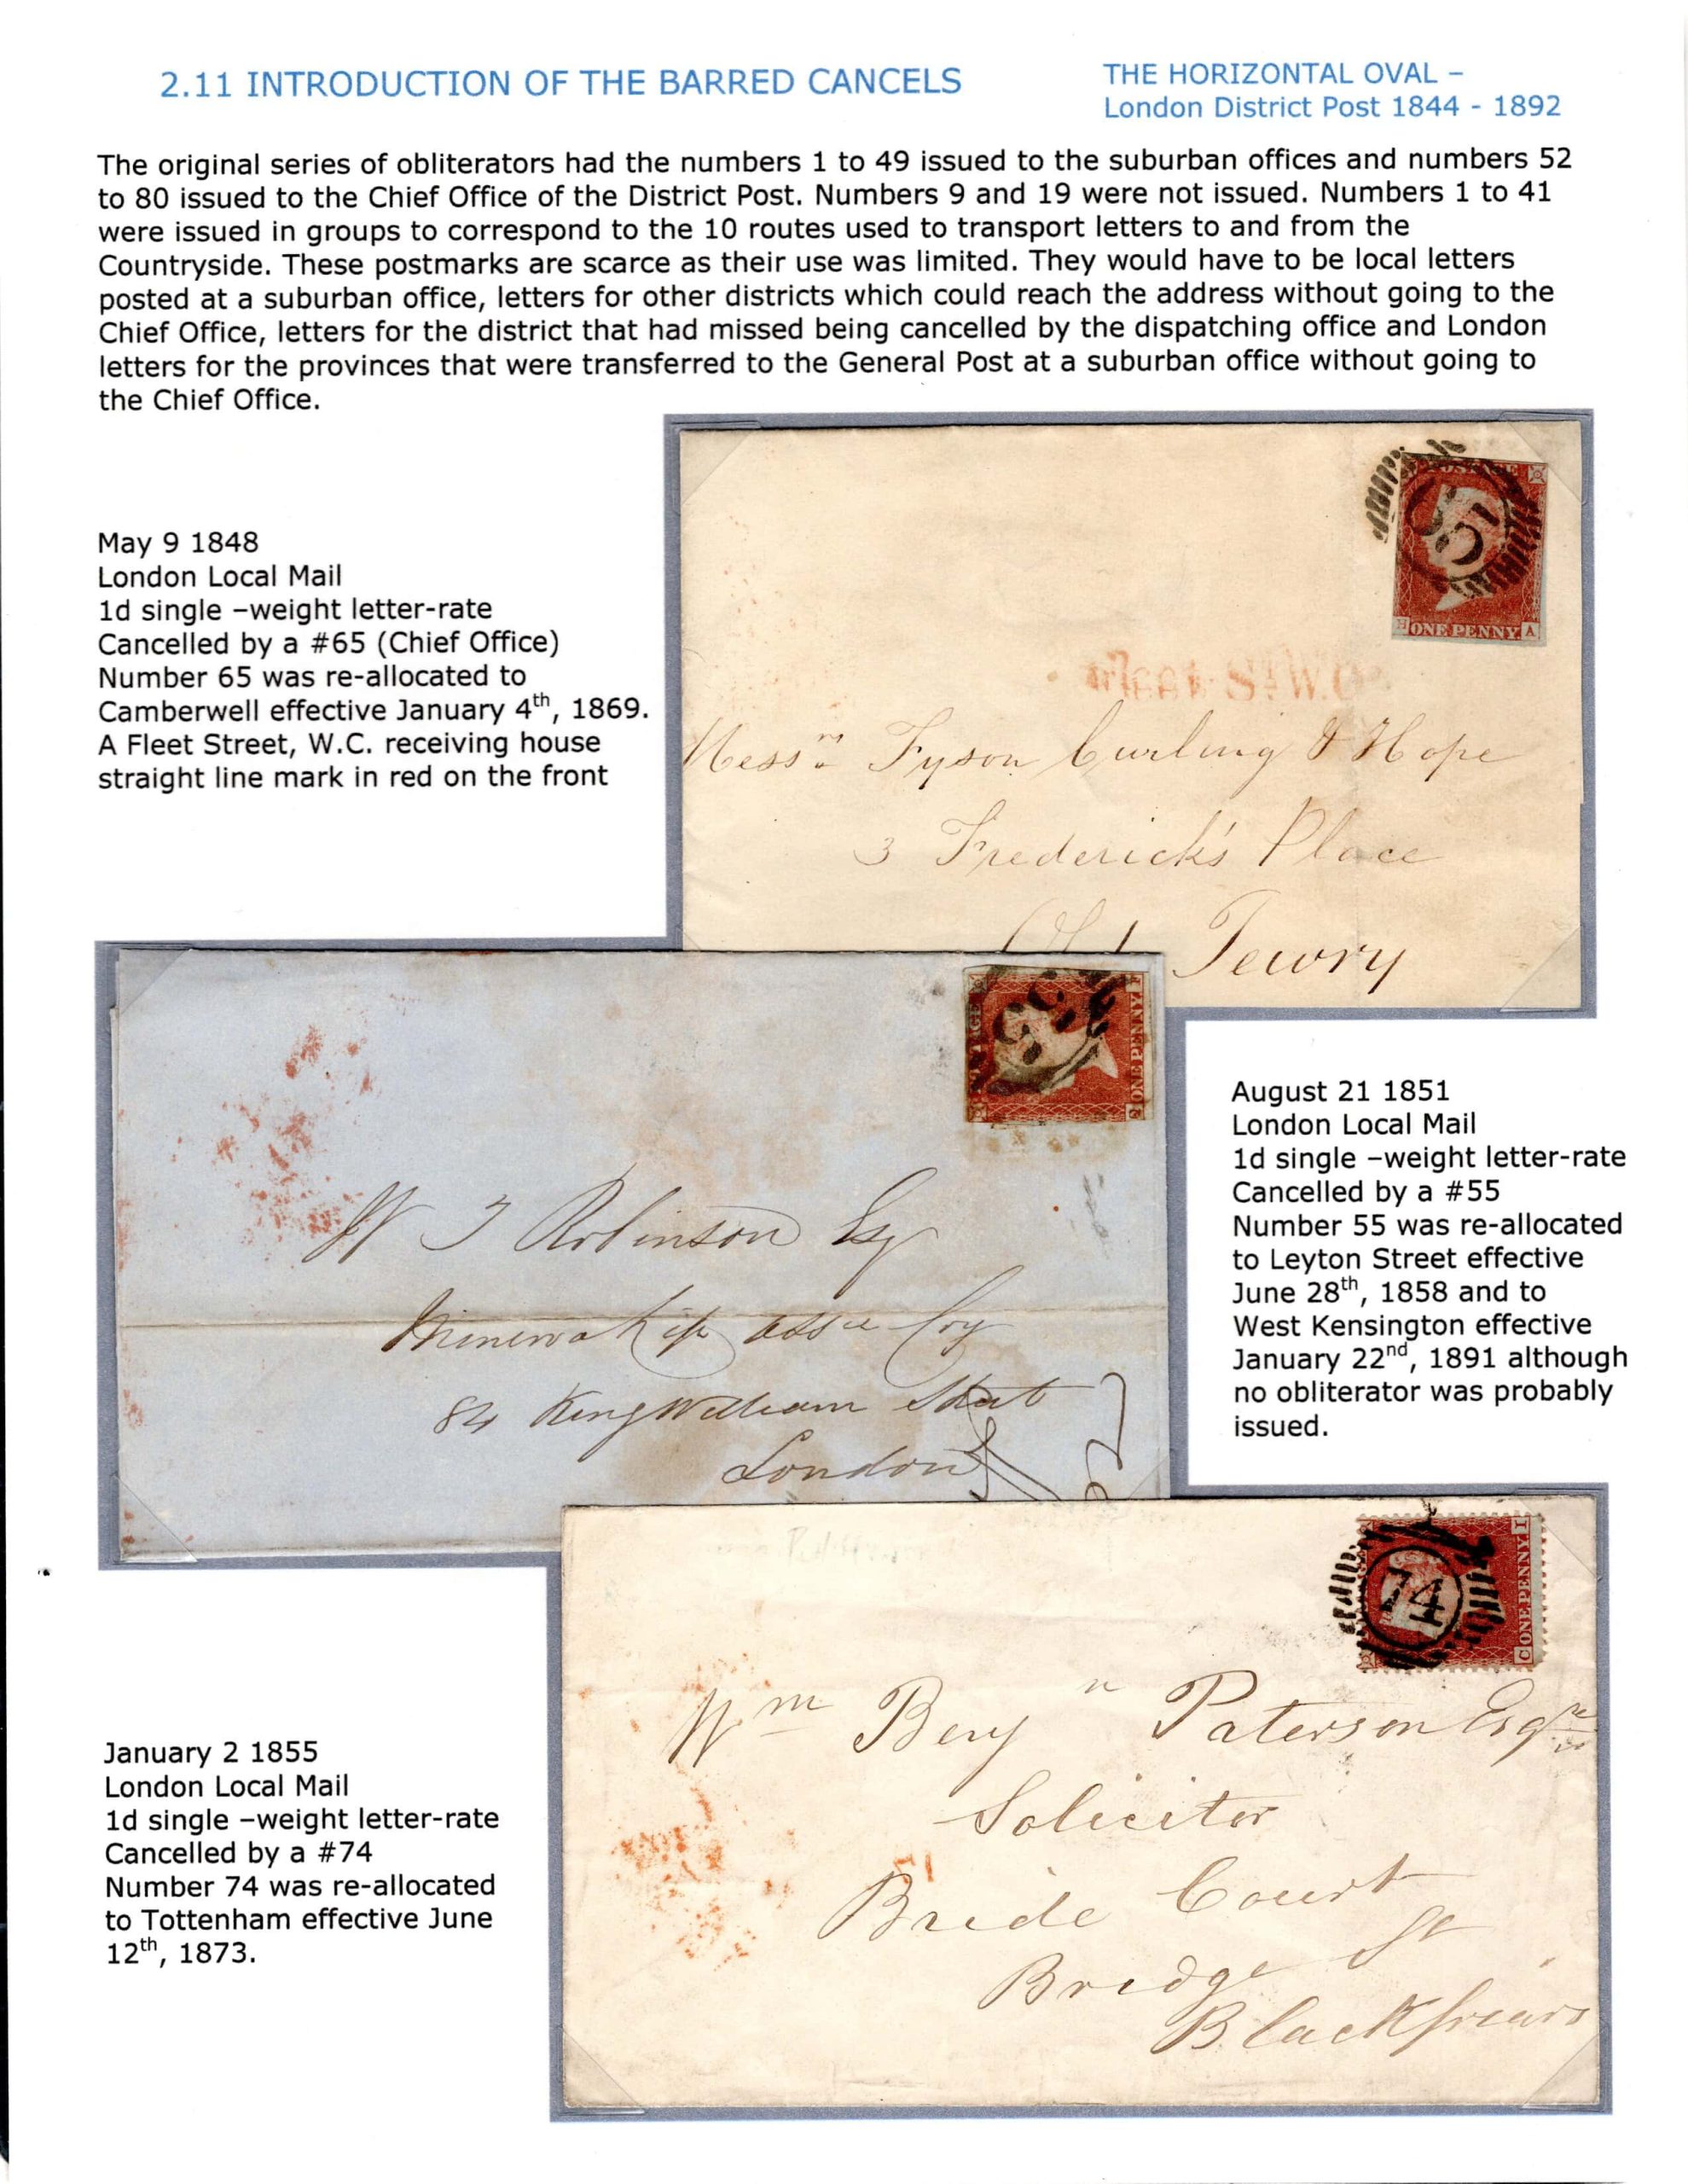 2.11 INTRODUCTION OF THE BARRED CANCELS
THE HORIZONTAL OVAL –
London District Post 1844 - 1892
The original series of obliterators had the numbers 1 to 49 issued to the suburban offices and numbers 52
to 80 issued to the Chief Office of the District Post. Numbers 9 and 19 were not issued. Numbers 1 to 41
were issued in groups to correspond to the 10 routes used to transport letters to and from the
Countryside. These postmarks are scarce as their use was limited. They would have to be local letters
posted at a suburban office, letters for other districts which could reach the address without going to the
Chief Office, letters for the district that had missed being cancelled by the dispatching office and London
letters for the provinces that were transferred to the General Post at a suburban office without going to
the Chief Office.
May 9 1848
London Local Mail
1d single –weight letter-rate
Cancelled by a #65 (Chief Office)
Number 65 was re-allocated to
Camberwell effective January 4th, 1869.
A Fleet Street, W.C. receiving house
straight line mark in red on the front
POSTAGE
H ONE PENNY A
St W.O
Messrs Tyson Curling & Hope
3 Frederick's Place
Old Jewry
ONE PENNY
W J Robinson Esq
Life Assce Coy
84 King William Street
London
August 21 1851
London Local Mail
1d single –weight letter-rate
Cancelled by a #55
Number 55 was re-allocated
to Leyton Street effective
June 28th, 1858 and to
West Kensington effective
January 22nd, 1891 although
no obliterator was probably
issued.
74
C ONE PENNY I
Wm Benjn Paterson Esqre
Solicitor
Bride Court
Bridge St
Blackfriars
January 2 1855
London Local Mail
1d single –weight letter-rate
Cancelled by a #74
Number 74 was re-allocated
to Tottenham effective June
12th, 1873.